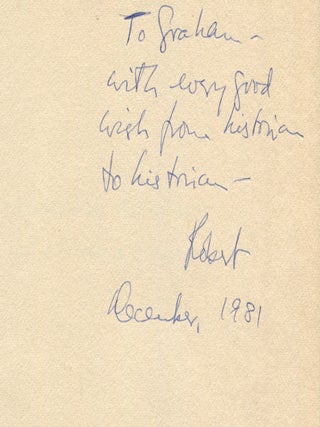 To Graham –
with every good
wish from historian
to historian –
Robert
December, 1981